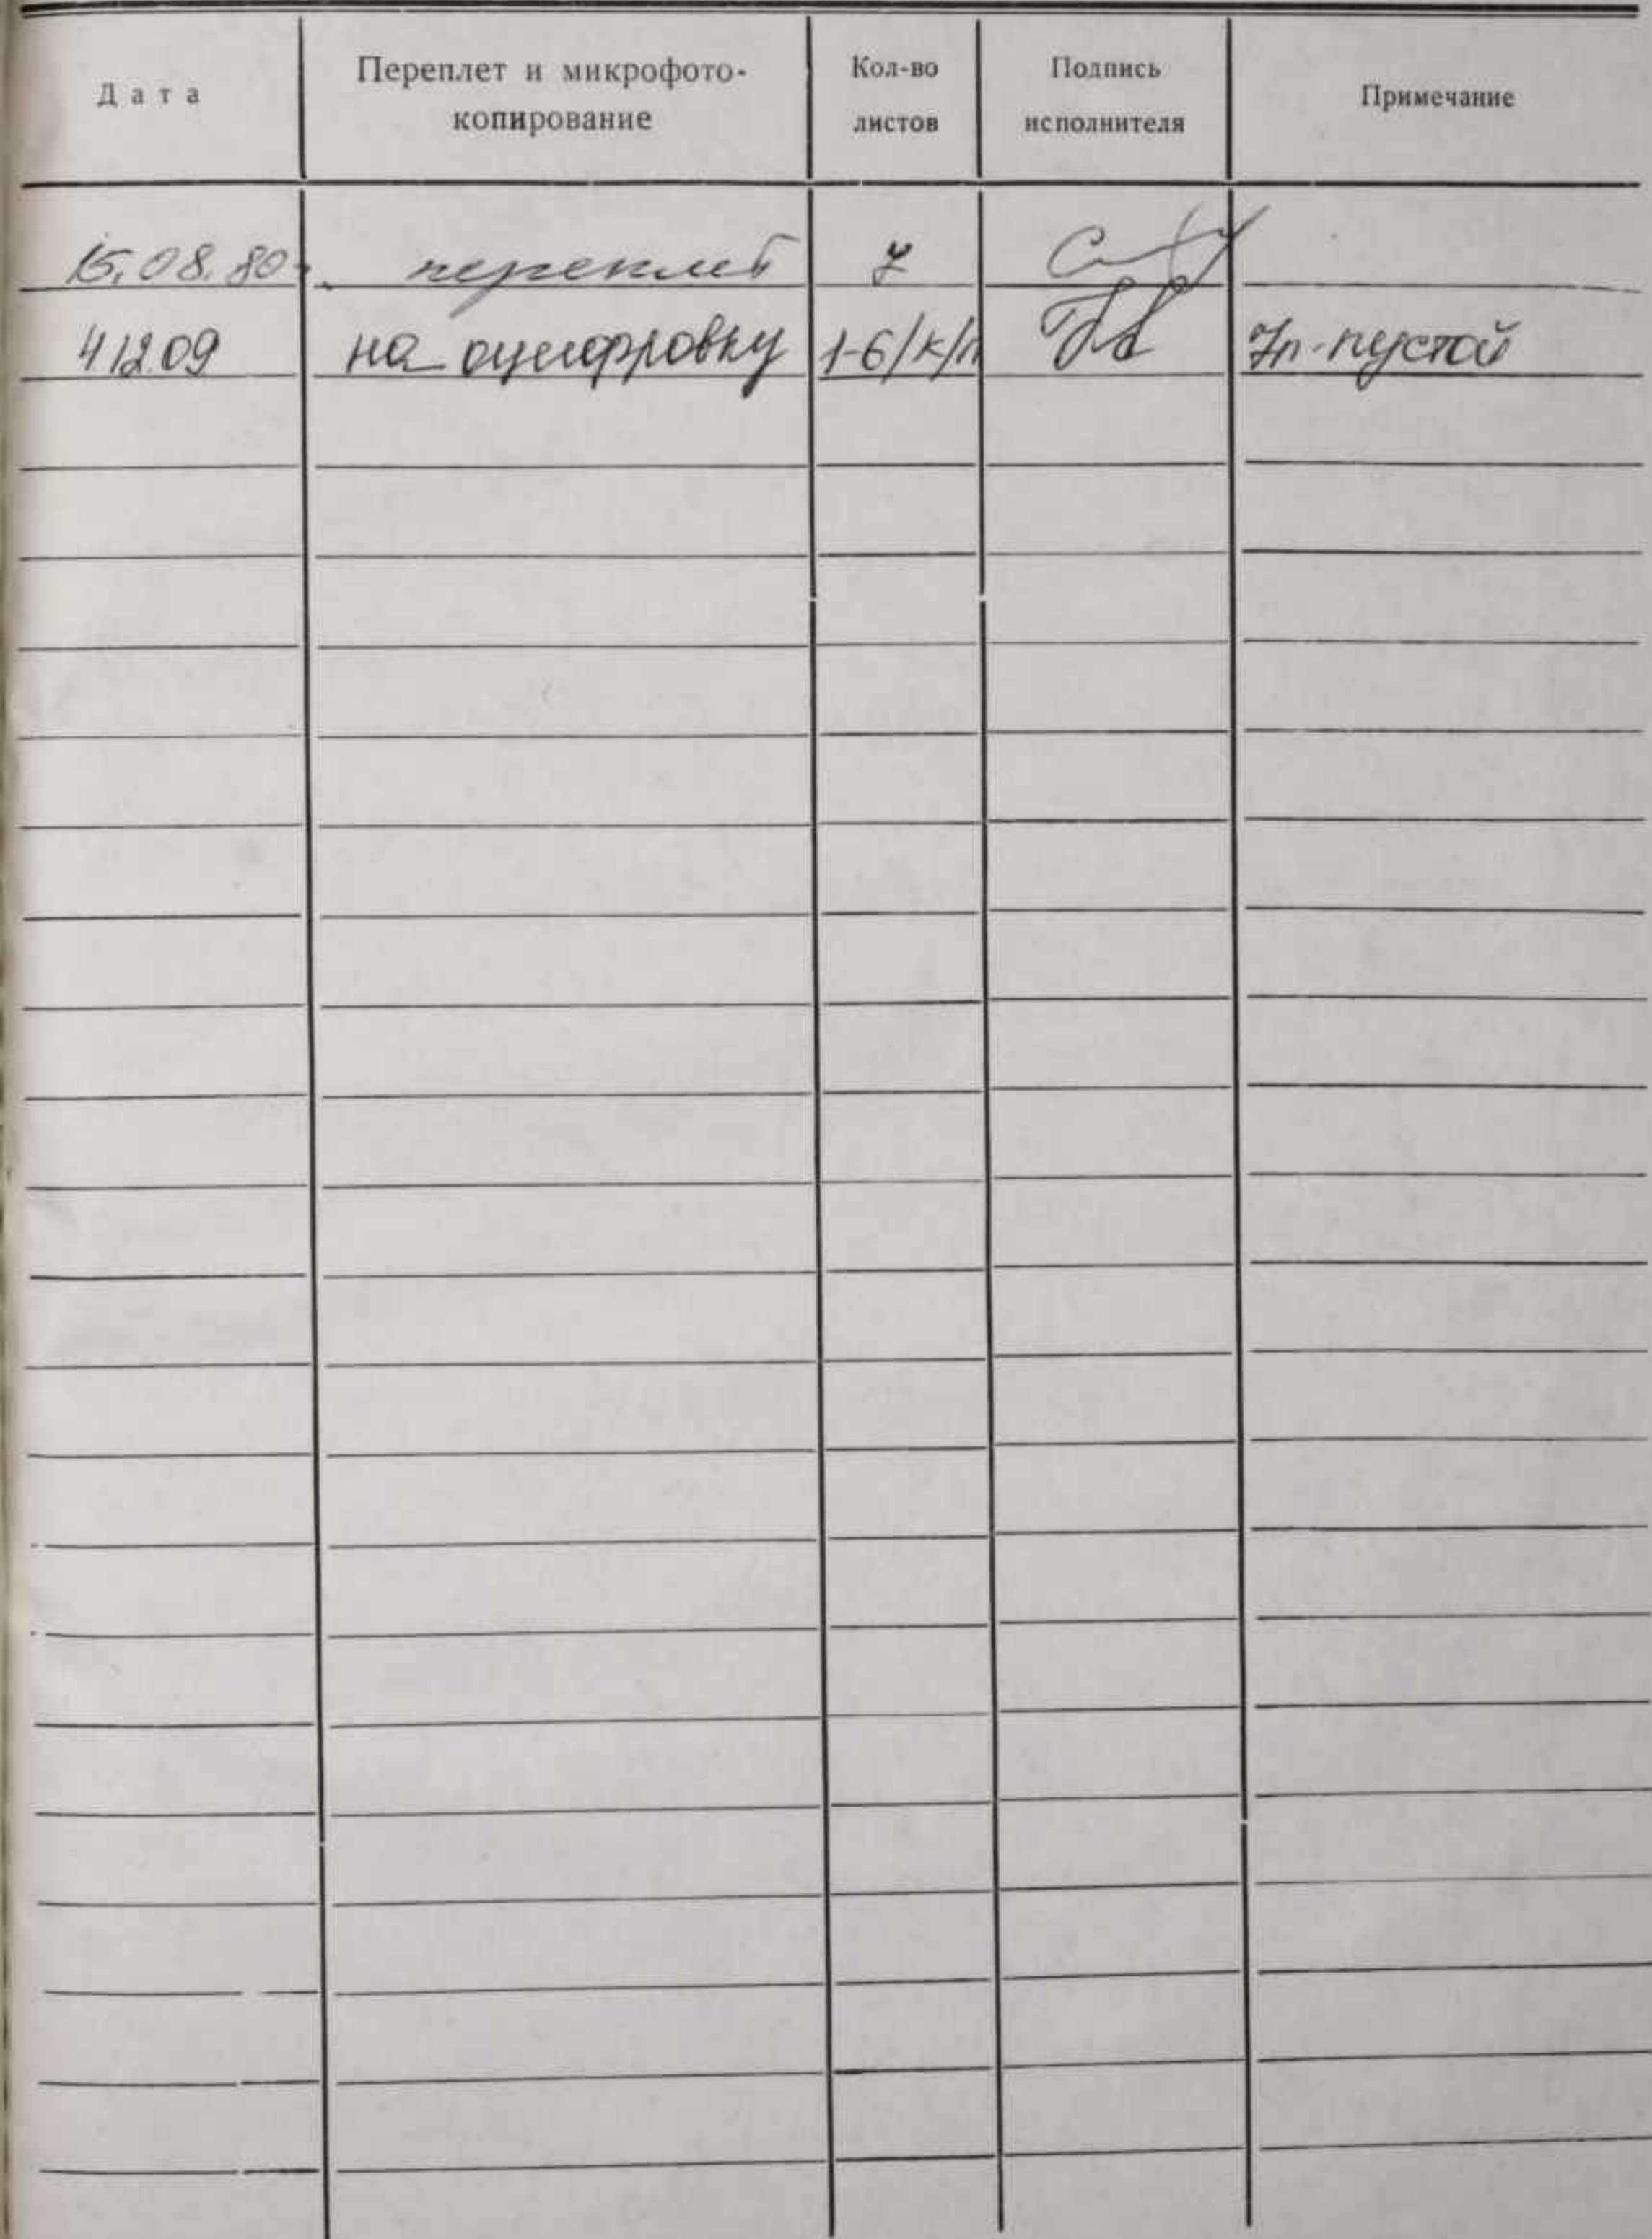 Дата
Переплет и микрофото-
копирование
Кол-во
листов
Подпись
исполнителя
Примечание
15.08.80. переплет 7
4 12 09 на оцифровку 1-6/к/п 7л-пустой